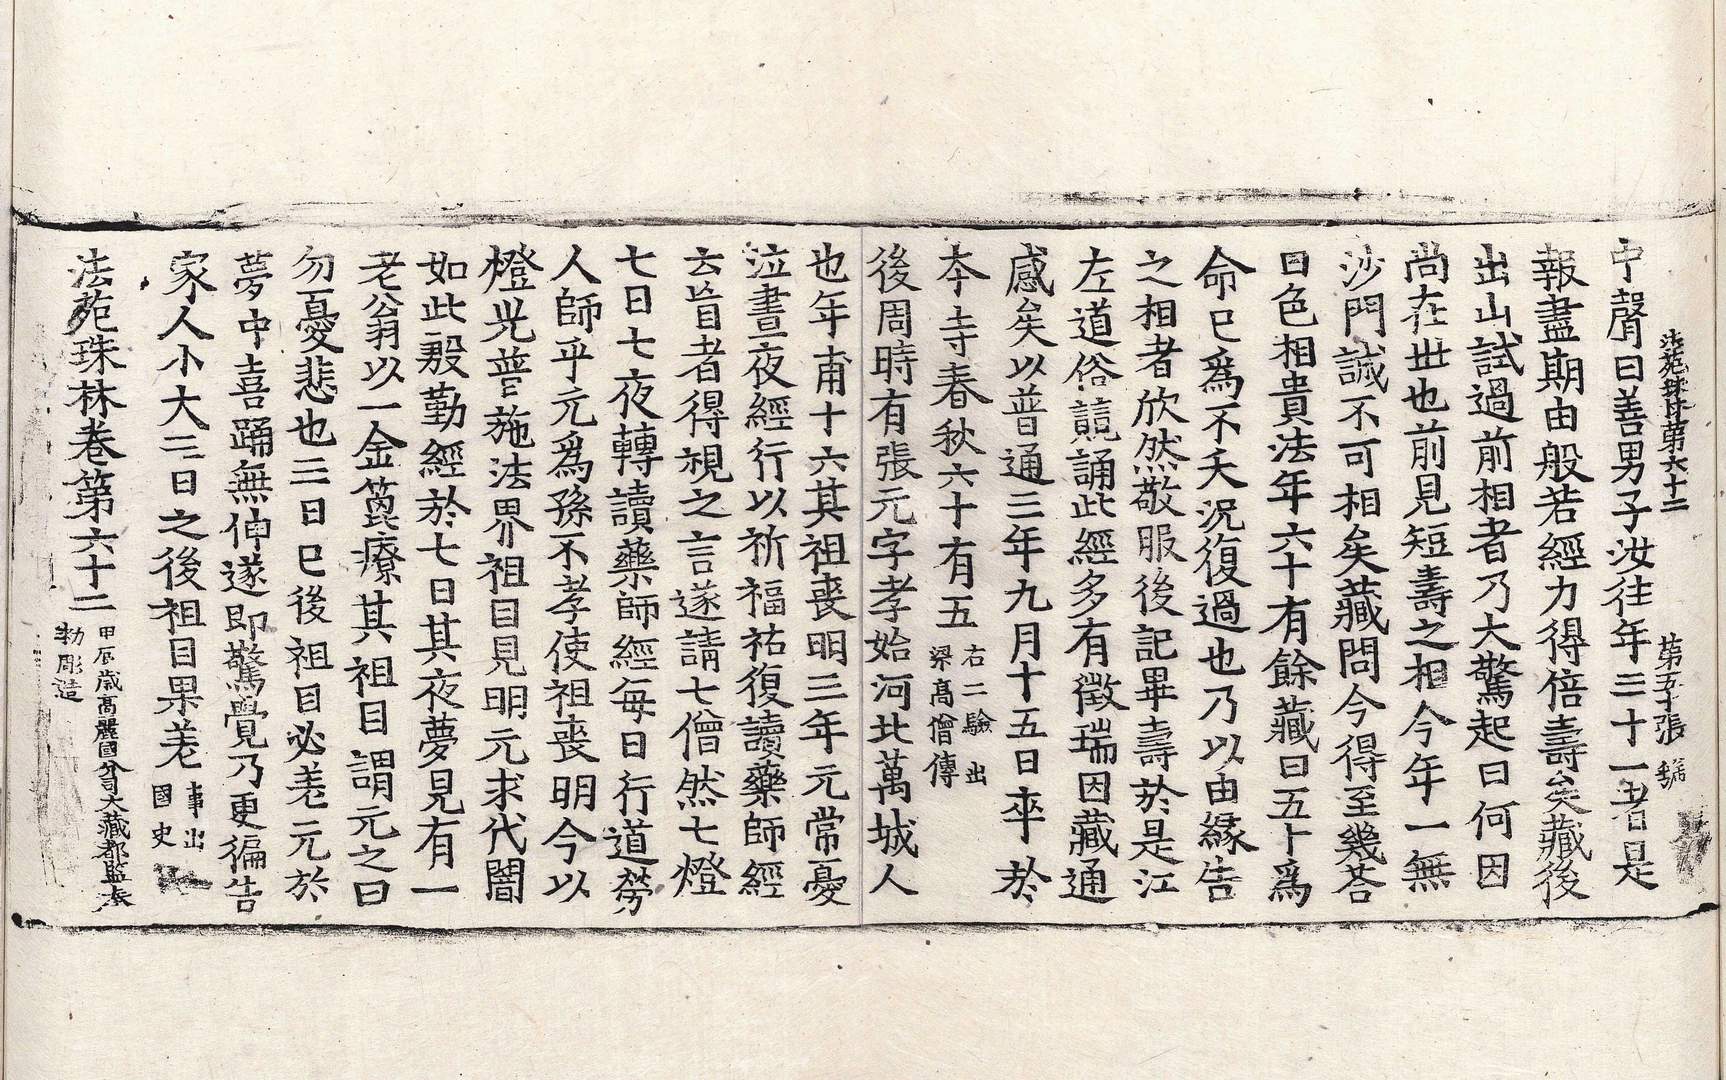 法苑珠林第六十二 第五十張 綺
中聲曰善男子汝往年三十一者是
報盡期由般若經力得倍壽矣藏後
出山試過前相者乃大驚起曰何因
尚在世也前見短壽之相今年一無
沙門誠不可相矣藏問今得至幾荅
曰色相貴法年六十有餘藏曰五十爲
命已爲不夭況復過也乃以由緣告
之相者欣然敬服後記畢壽於是江
左道俗競誦此經多有徵瑞因藏通
感矣以普通三年九月十五日卒於
本寺春秋六十有五 右二驗出
梁高僧傳
後周時有張元字孝始河北萬城人
也年甫十六其祖喪明三年元常憂
泣晝夜經行以祈福祐復讀藥師經
云盲者得視之言遂請七僧然七燈
七日七夜轉讀藥師經每日行道勞
人師乎元爲孫不孝使祖喪明今以
燈光普施法界祖目見明元求代闇
如此殷勤經於七日其夜夢見有一
老翁以一金篦療其祖目謂元之曰
勿憂悲也三日已後祖目必差元於
夢中喜踊無伸遂即驚覺乃更徧告
家人小大三日之後祖目果差 事出
國史
法苑珠林卷第六十二 甲辰歲高麗國分司大藏都監奉
勑彫造